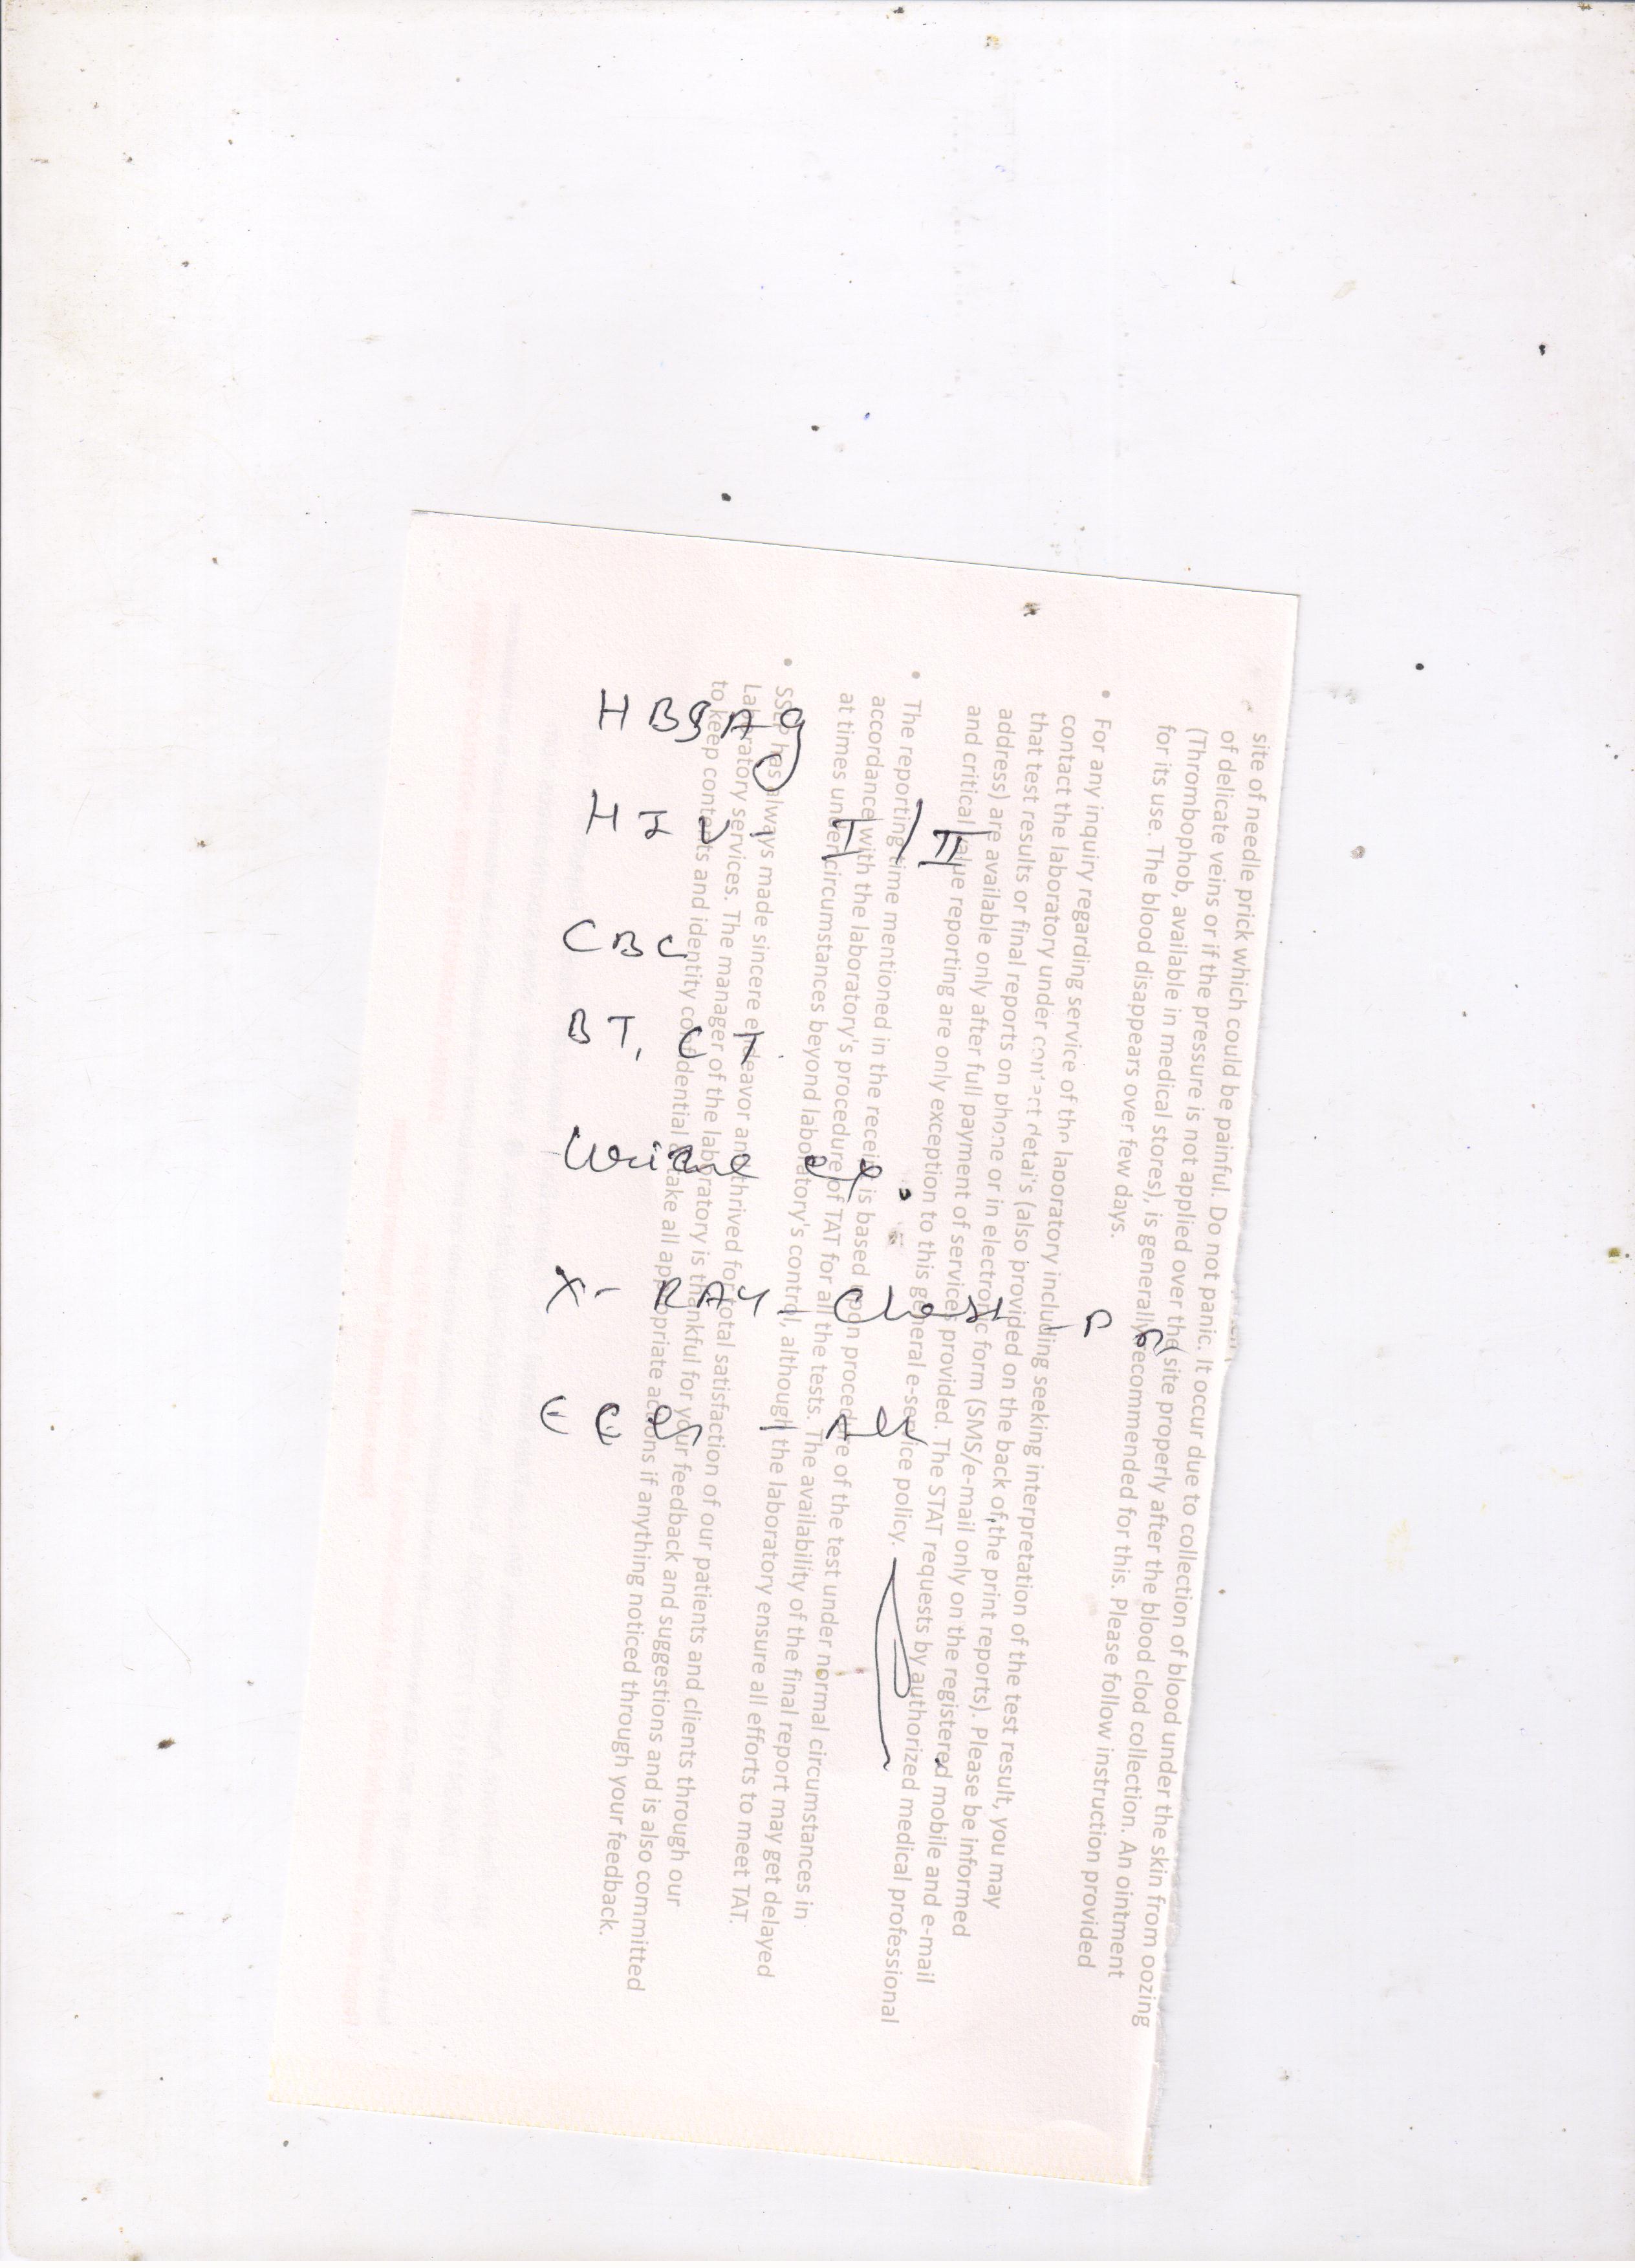 HBsAg
HIV- I/II
CBC
BT, CT.
Urine
X-RAY-Chest -P
ECG - All
site of needle prick which could be painful. Do not panic. It occur due to collection of blood under the skin from oozing
of delicate veins or if the pressure is not applied over the site properly after the blood clod collection. An ointment
(Thrombophob, available in medical stores), is generally recommended for this. Please follow instruction provided
for its use. The blood disappears over few days.
• For any inquiry regarding service of the laboratory including seeking interpretation of the test result, you may
contact the laboratory under contact detai's (also provided on the back of the print reports). Please be informed
that test results or final reports on phone or in electronic form (SMS/e-mail only on the registered mobile and e-mail
address) are available only after full payment of services provided. The STAT requests by authorized medical professional
and critical value reporting are only exception to this general e-service policy.
• The reporting time mentioned in the receipt is based upon procedure of the test under normal circumstances in
accordance with the laboratory's procedure of TAT for all the tests. The availability of the final report may get delayed
at times under circumstances beyond laboratory's control, although the laboratory ensure all efforts to meet TAT.
• has always made sincere endeavor and thrived for total satisfaction of our patients and clients through our
Laboratory services. The manager of the laboratory is thankful for your feedback and suggestions and is also committed
to keep contents and identity confidential & take all appropriate actions if anything noticed through your feedback.